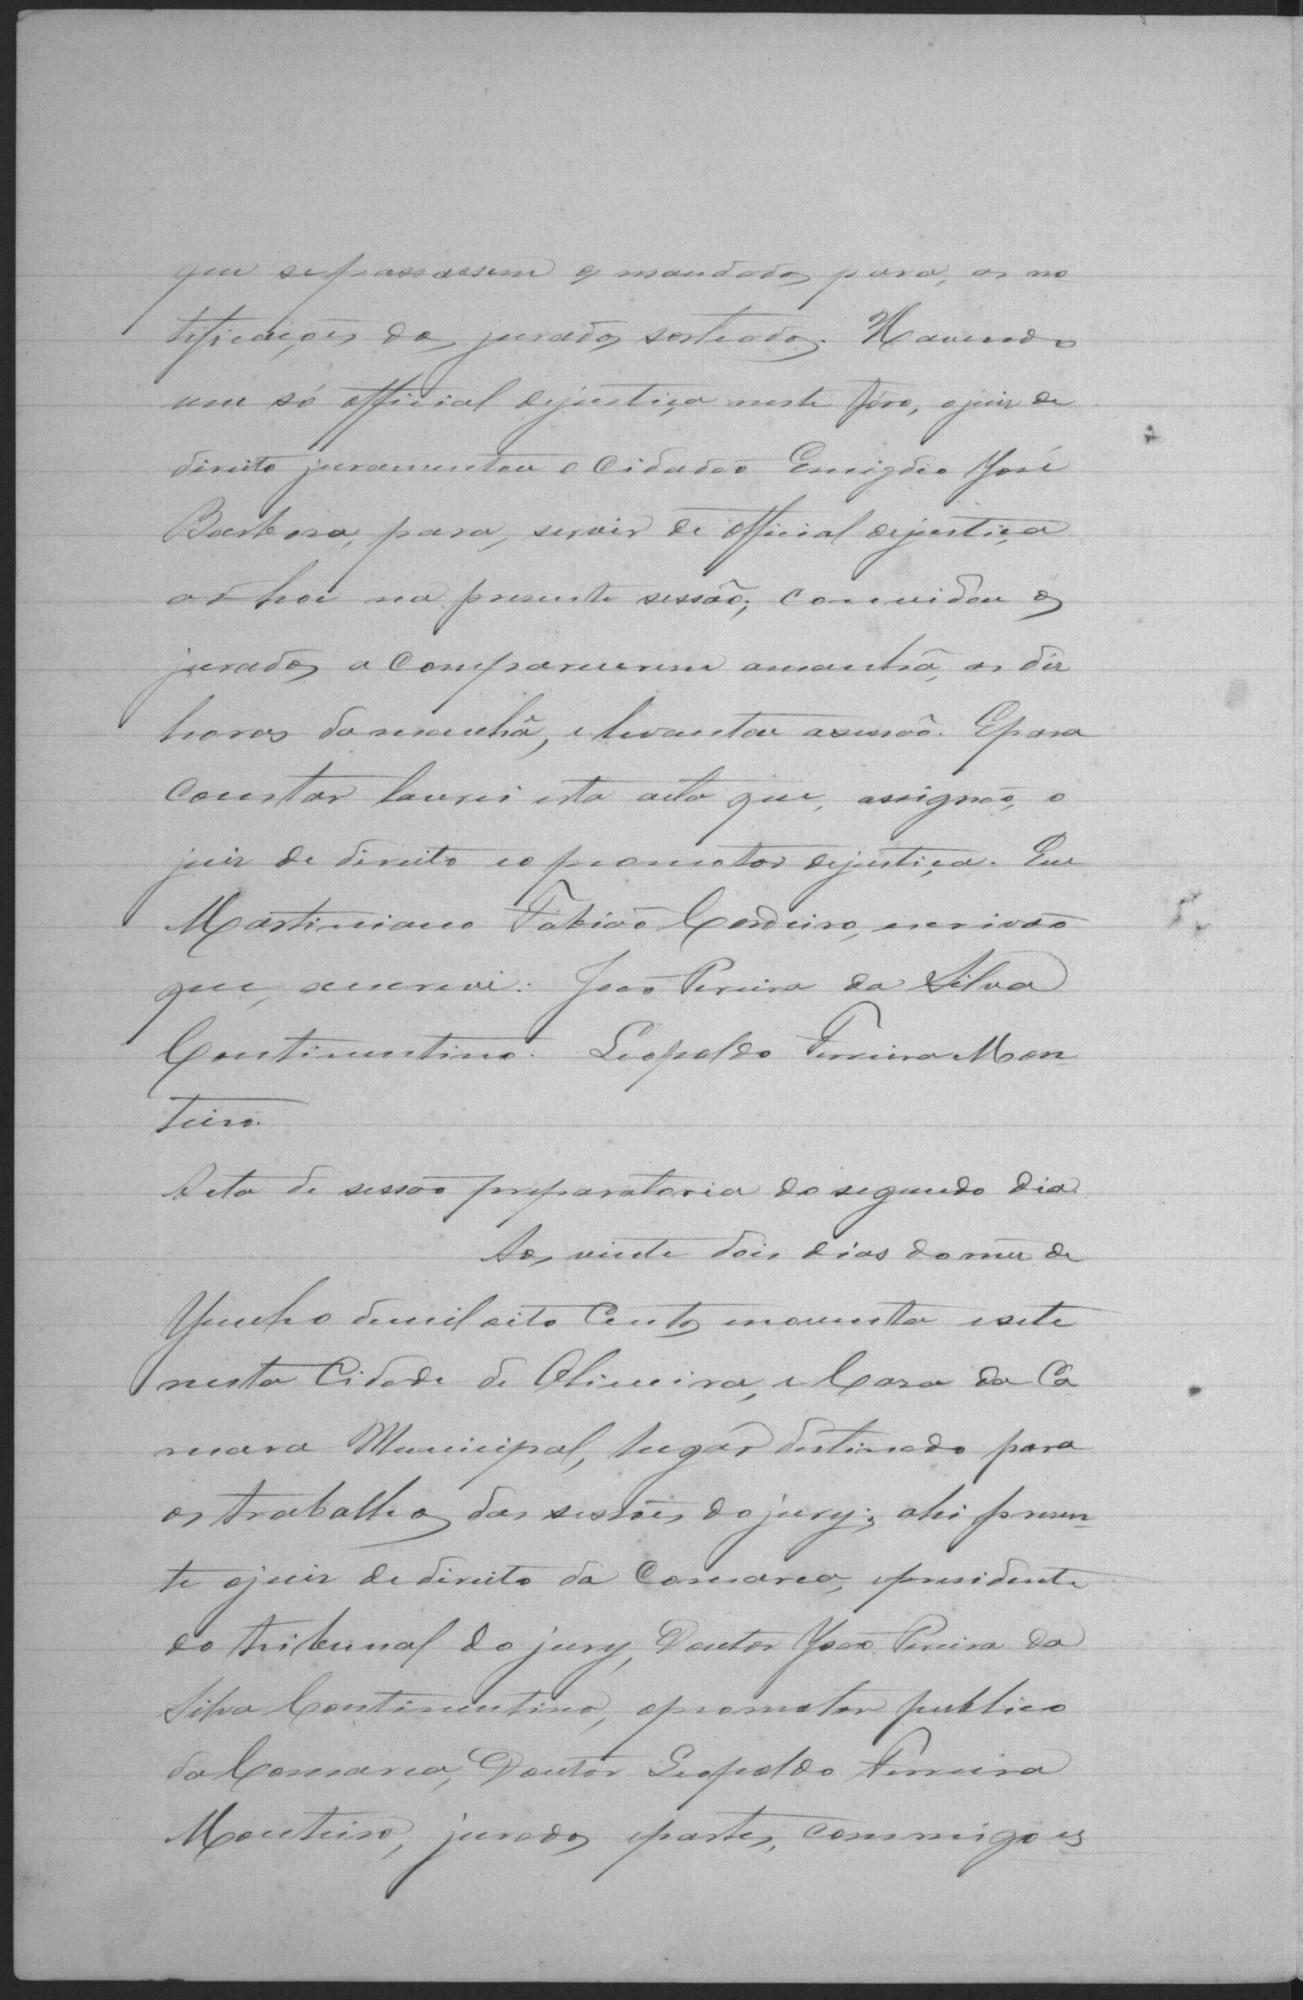 que se passassem os mandados para, as no
tificações dos jurados sorteados. Havendo
um só official dejustiça neste fôro, ojuiz de
direito juramentou o Cidadão Emigdio José
Barbosa, para, servir de official dejustiça
ad hoc na presente sessão; convidou os
jurados a Comparecerem amanhã, as dez
horas damanhã, e levantou asessão. Epara
Constar lavrei esta acta que, assignão, o
juiz de direito eo promotor dejustiça. Eu
Martiniano Fabião Cordeiro, escrivão
que, escrevi. João Pereira da Silva
Continentino. Leopoldo Ferreira Mon
teiro.
Acta de sessão preparatoria do segundo dia
Aos, vinte dois dias domez de
Junho demil oito Centos enoventa esete
nesta Cidade de Oliveira, e Casa da Ca
mara Municipal, lugar destinado para
os trabalhos das sessões dojury; ahi presen
te ojuiz dedireito da Comarca, epresidente
do tribunal do jury, Doutor João Pereira da
Silva Continentino, opromotor publico
da Comarca, Doutor Leopoldo Ferreira
Monteiro, jurados epartes, commigo es